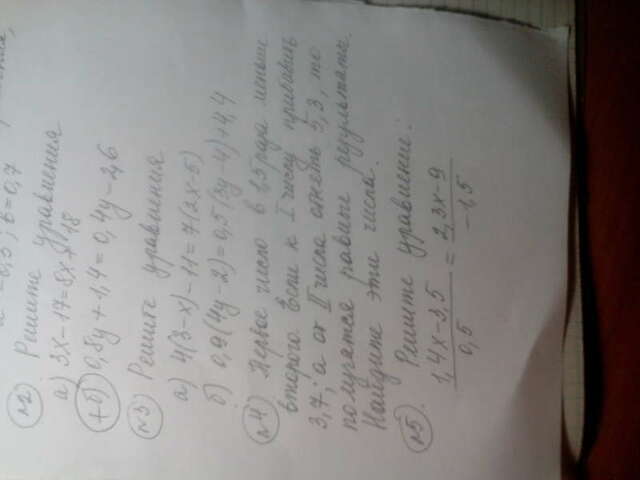 a = -0,3; b = 0,7
№2 Решите уравнения
а) 3x - 17 = 8x + 18
+б) 0,8y + 1,4 = 0,4y - 2,6
№3 Решите уравнения
а) 4(3-x) - 11 = 7(2x-5)
б) 0,9(4y-2) = 0,5(3y-4) + 4,4
№4 Первое число в 1,5 раза меньше
второго. Если к I числу прибавить
3,7, а от II числа отнять 5,3, то
получатся равные результаты.
Найдите эти числа.
№5. Решите уравнение:
1,4x-3,5 = 2,3x-9
0,5 -1,5